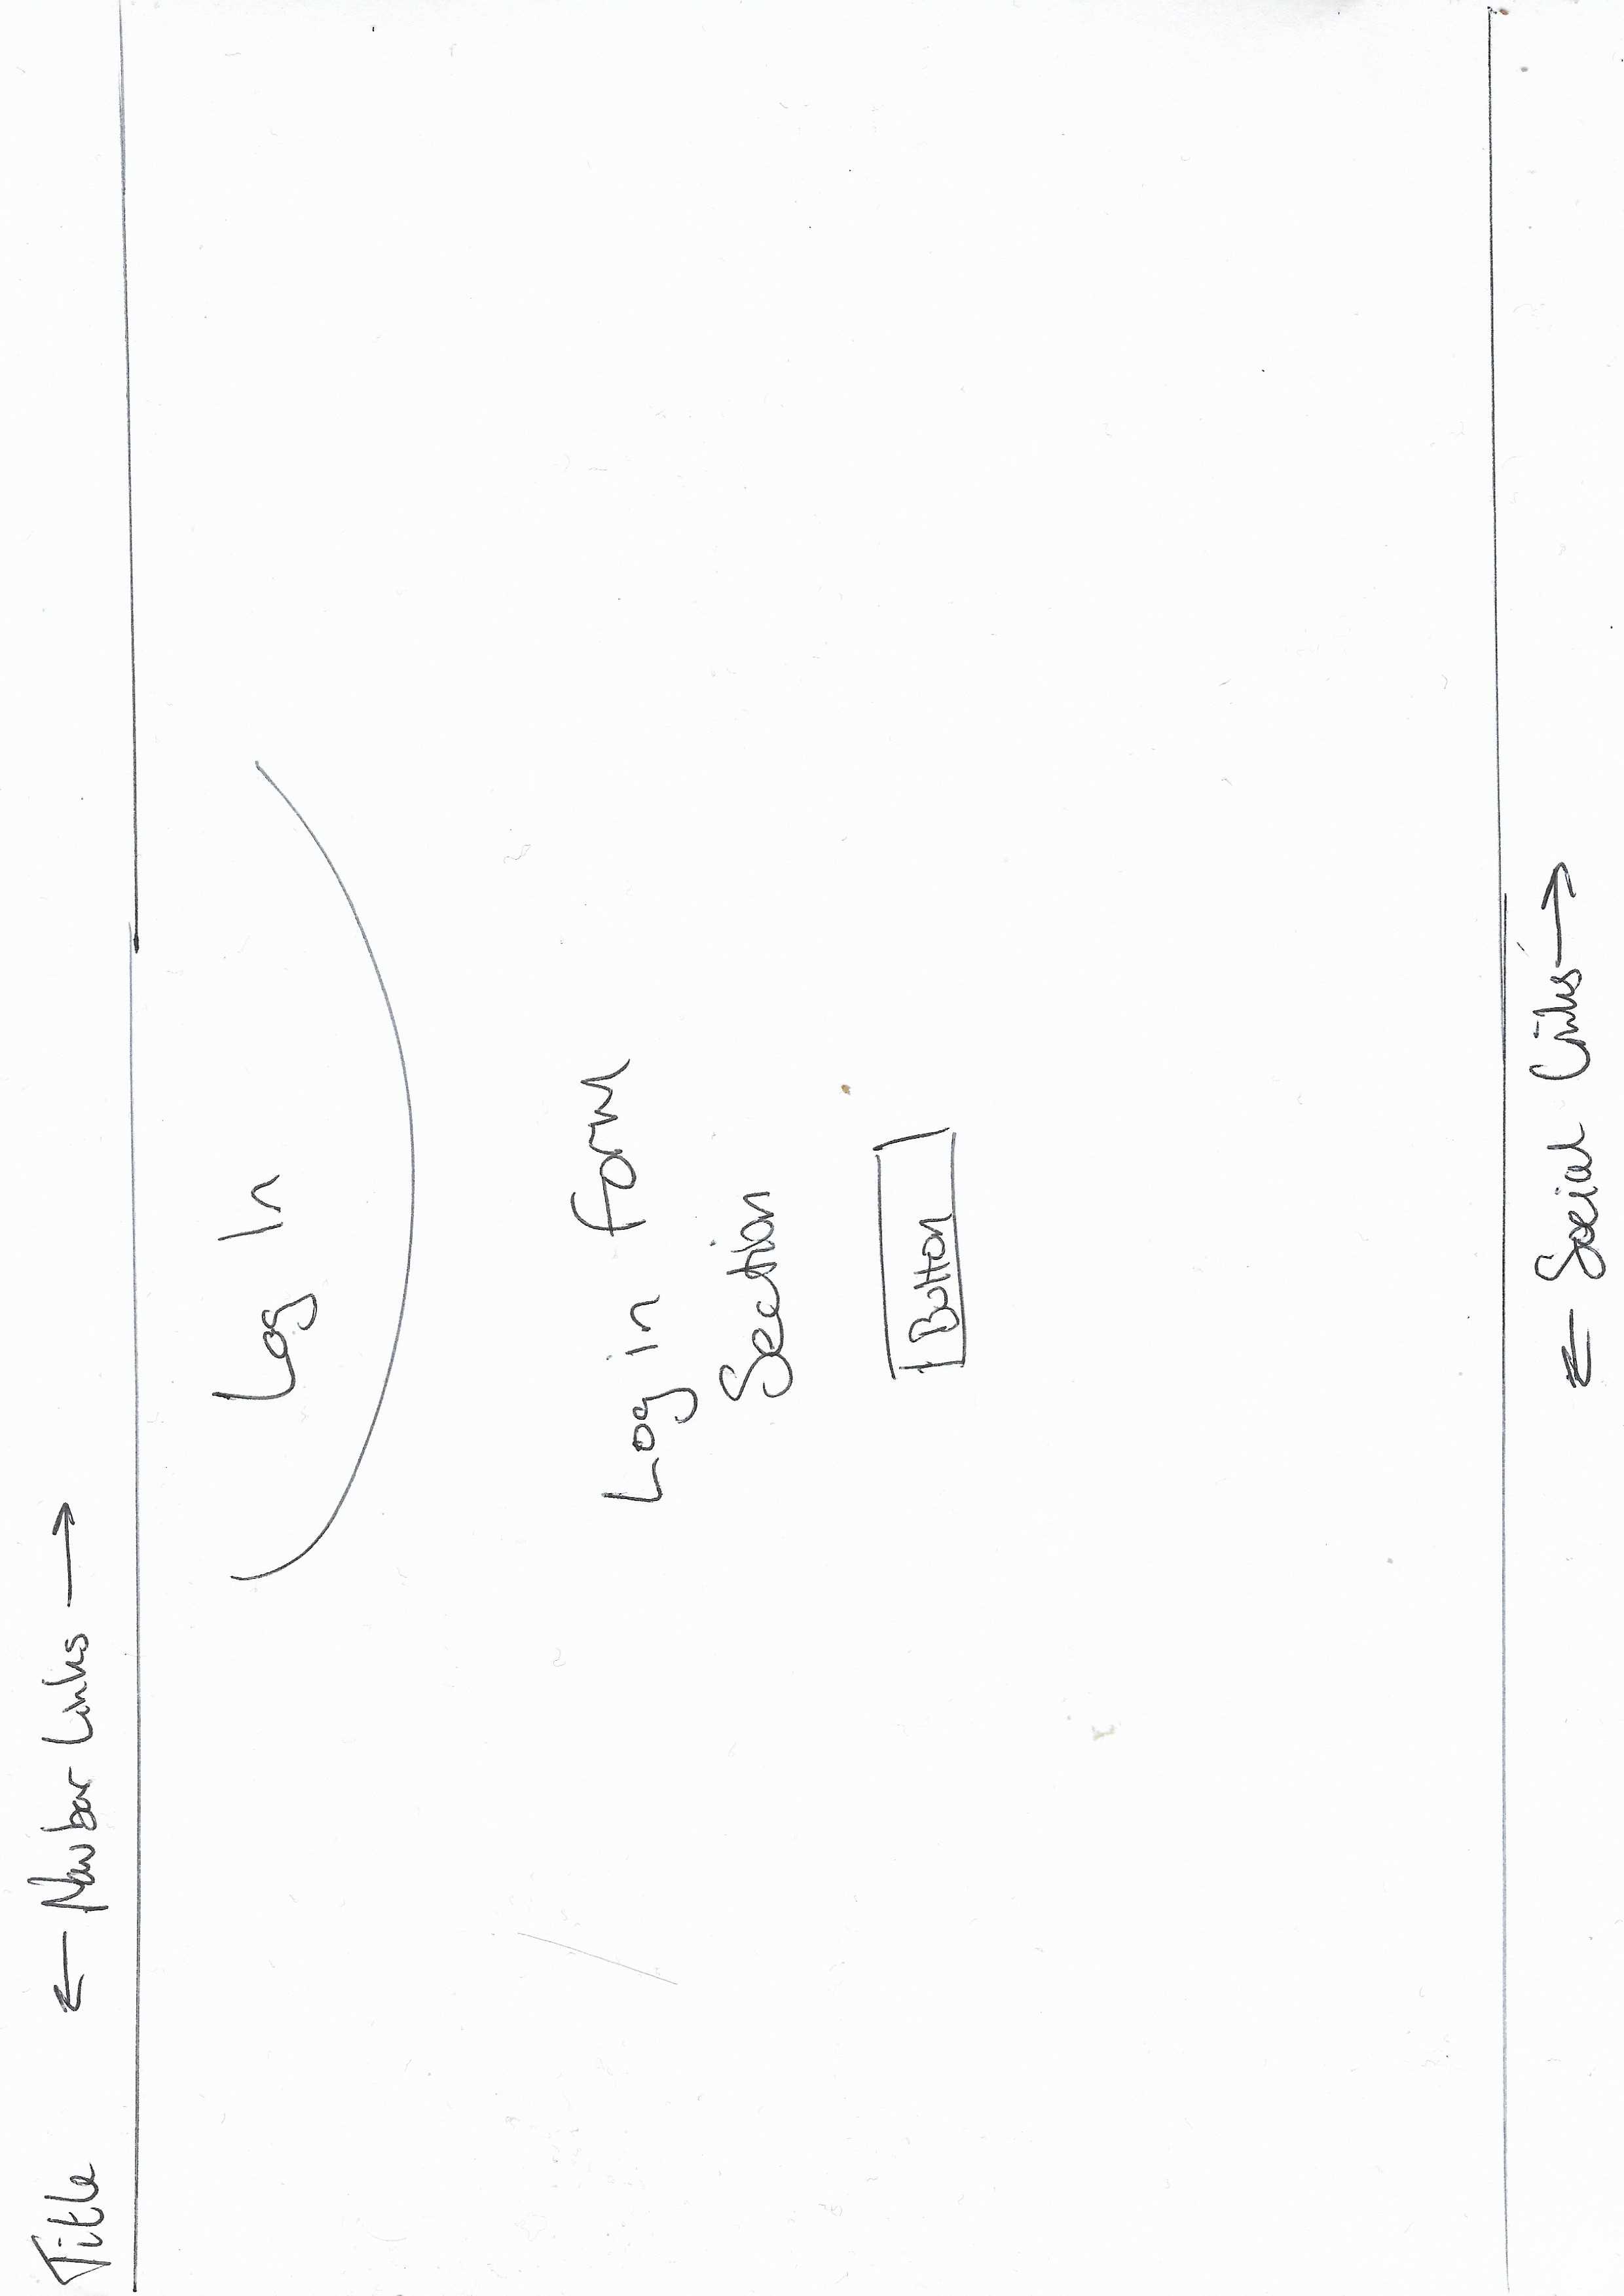 Title ← Navbar Links →
Log In
Log in Form
Section
Button
← Social Links →